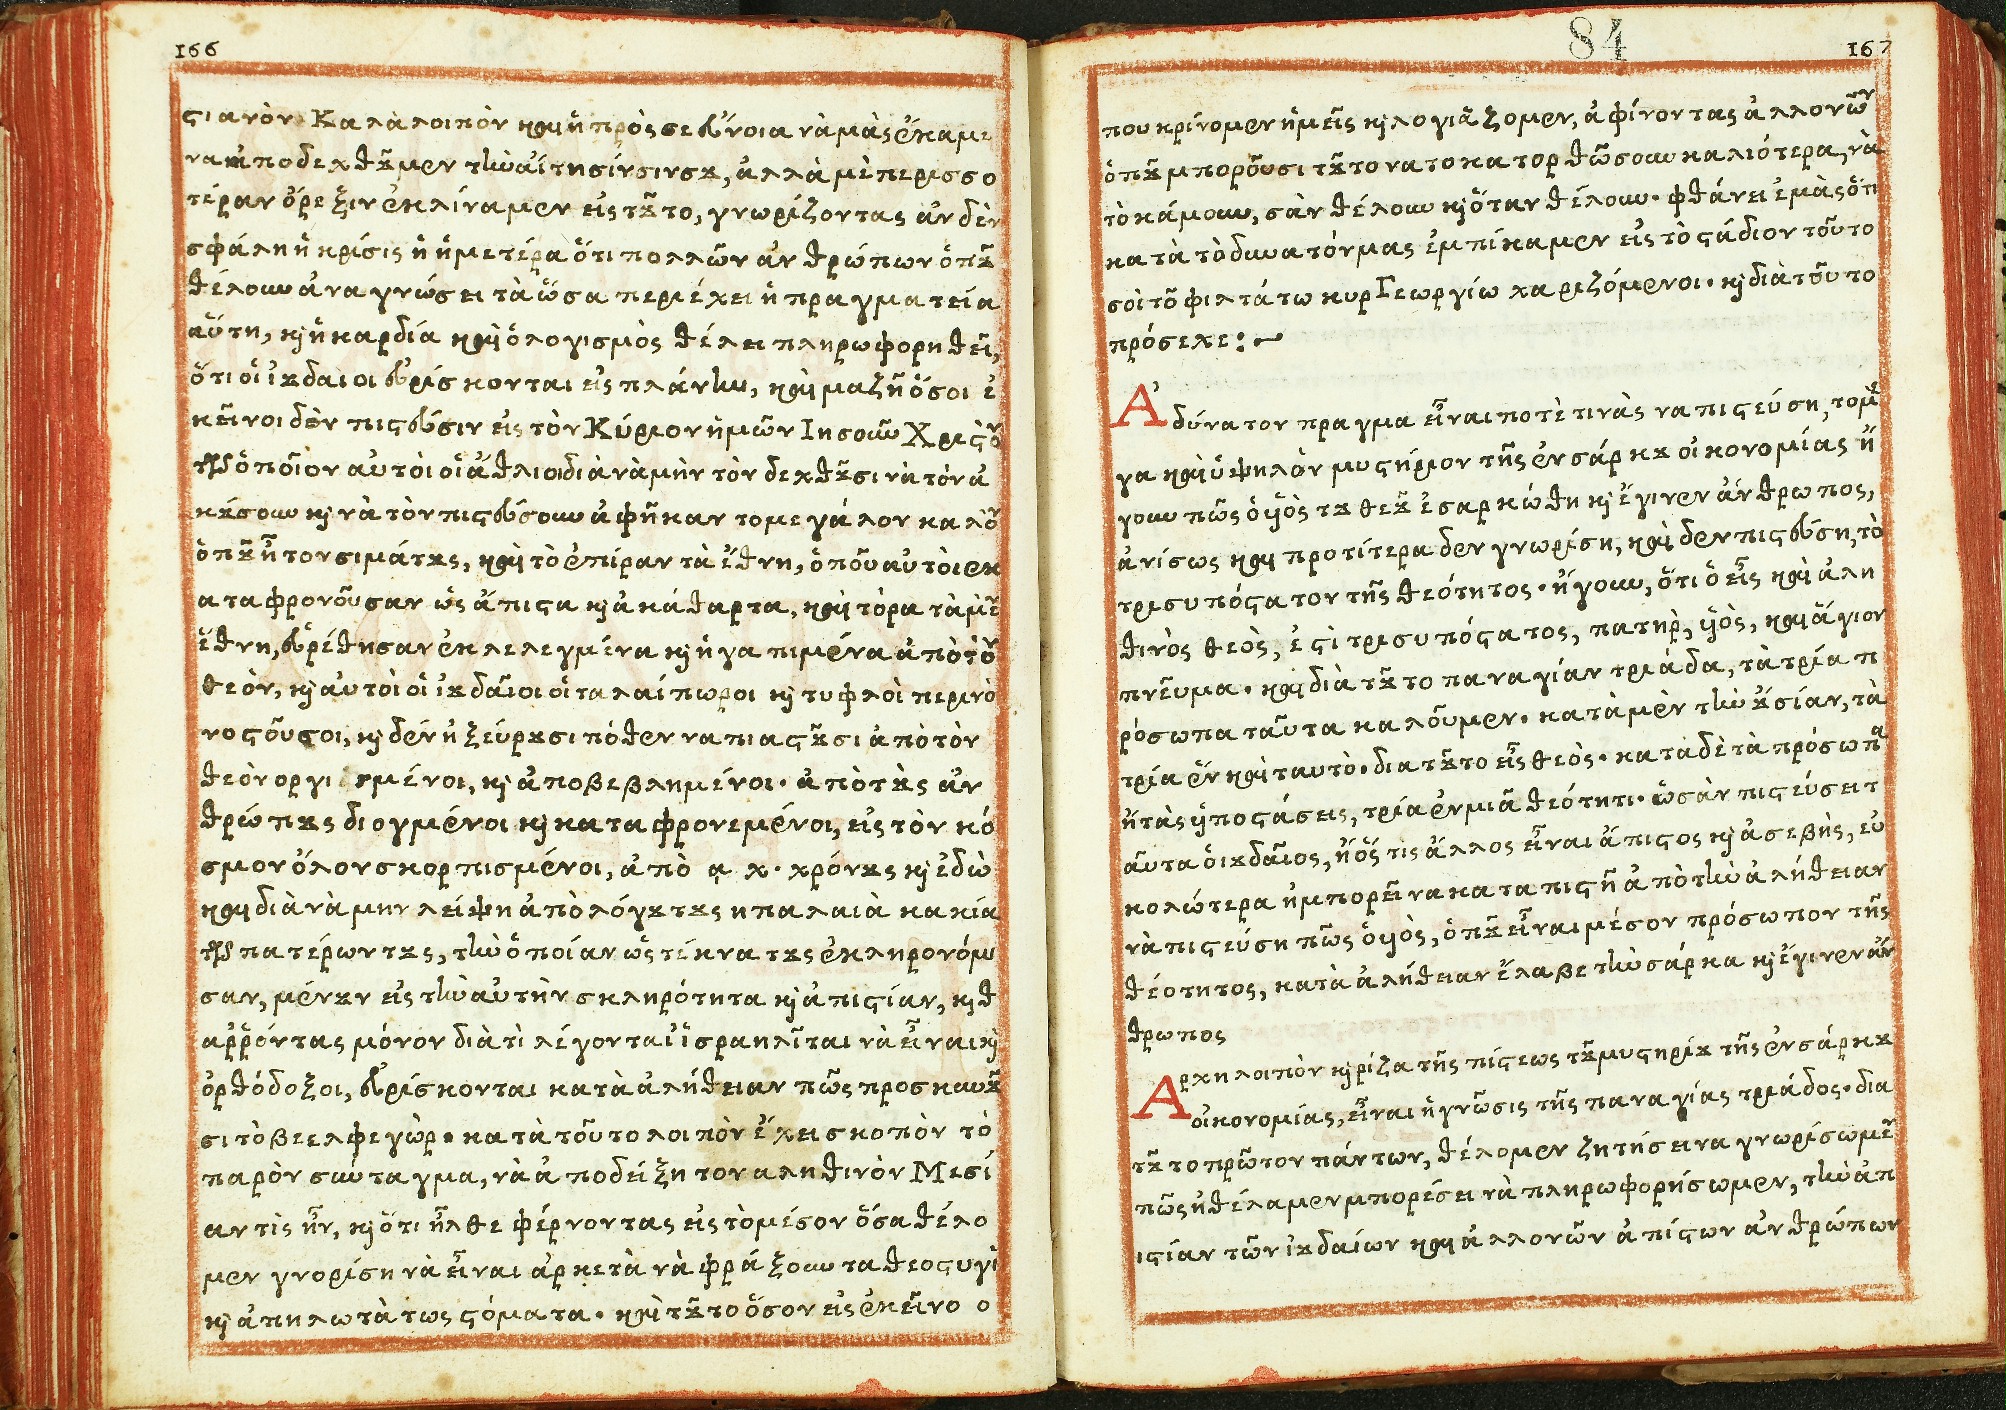 166
ςιανόν Καλὰ λοιπὸν καὶ ἡ πρὸς σε εὔνοια νὰ μὰς ἔκαμε
να ἀποδεχθοῦμεν τὴν αἴτησίν σιν σου, ἀλλὰ μὲ περισσο
τέραν ὄρεξιν ἐκλίναμεν εἰς τοῦτο, γνωρίζοντας ἀν δὲν
σφάλη ἡ κρίσις ἡ ἡμετέρα ὅτι πολλῶν ἀνθρώπων ὁποῦ
θέλουν ἀναγνώσει τὰ ὥσα περιέχει ἡ πραγματεία
αὕτη, κὶ ἡ καρδία καὶ ὁ λογισμὸς θέλει πληρωφορηθεῖ,
ὅτι οἱ ἰουδαιοι εὑρίσκονται εἰς πλάνην, καὶ μαζῆ ὅσοι ἐ
κεῖνοι δὲν πιστεύσιν εἰς τὸν Κύριον ἡμῶν Ιησοῦν Χριστὸν
τὸν ὁποῖον αὐτὸι οἱ ἄθλιοι διὰ νὰ μὴν τὸν δεχθοῦσι νὰ τὸν ἀ
κούσουν κὶ νὰ τὸν πιστεύσουν ἀφῆκαν το μεγάλον καλὸν
ὁποῦ ἦτον σιμάτους, καὶ τὸ ἐπίραν τὰ ἔθνη, ὁποῦ αὐτὸι εκ
αταφρονοῦσαν ὡς ἄπιστα κὶ ἀκάθαρτα, καὶ τόρα τὰ μὲν
ἔθνη, εὑρέθησαν ἐκλελεγμένα κὶ ἠγαπιμένα ἀπὸ τὸν
θεὸν, κὶ αὐτὸι οἱ ἰουδαῖοι οἱ ταλαίπωροι κὶ τυφλοὶ περινὸ
νοστοῦσοι, κὶ δὲν ἠξεύρουσι πόθεν να πιαστοῦσι ἀπὸ τὸν
θεὸν οργι σμένοι, κὶ ἀποβεβλημένοι· ἀπὸ τοὺς ἀν
θρώπους διογμένοι κὶ καταφρονεμένοι, εἰς τὸν κό
σμον ὅλον σκορπισμένοι, ἀπὸ α χ· χρόνους κὶ ἐδὼ
καὶ διὰ νὰ μην λείψη ἀπὸ λόγου τους η παλαιὰ κακία
τῶν πατέρων τους, τὴν ὁποίαν ὡς τέκνα τους ἐκληρονόμι
σαν, μένουν εἰς τὴν αὐτὴν σκληρότητα κὶ ἀπιστίαν, κὶ θ
αῤῥόντας μόνον διὰ τὶ λέγονται ἰσραηλῖται νὰ εἶναι κὶ
ὀρθόδοξοι, εὑρίσκονται κατὰ ἀλήθειαν πῶς προσκυνοῦ
σι τὸ βεελφεγὼρ· κατὰ τοῦτο λοιπὸν ἔχει σκοπὸν τὸ
παρὸν σύνταγμα, νὰ ἀποδείξη τον αληθινὸν Μεσί
αν τὶς ἦν, κὶ ὅτι ἦλθε φέρνοντας εἰς τὸ μέσον ὅσα θέλο
μεν γνορίση νὰ εἶναι ἀρκετὰ νὰ φράξουν τα θεοστυγὶ
κὶ ἀπηλωτὰ τως στόματα· καὶ τοῦτο ὅσον εἰς ἐκεῖνο ο
84
167
που κρίνομεν ἡμεῖς κὶ λογιάζομεν, ἀφίνοντας ἀλλονῶν
ὁποῦ μποροῦσι τοῦτο να το κατορθῶσουν καλιότερα, νὰ
τὸ κάμουν, σὰν θέλουν κὶ ὅταν θέλουν· φθάνει ἐμὰς ὅτι
κατὰ τὸ δυνατόν μας ἐμπίκαμεν εἰς τὸ στάδιον τοῦτο
σοὶ τῶ φιλτάτω κυρ Γεωργίω χαριζόμενοι· κὶ διὰ τοῦτο
πρόσεχε:~
Αδύνατον πραγμα εἶναι ποτὲ τινὰς να πιστεύση, το με
γα καὶ ὑψηλὸν μυστήριον τῆς ἐνσάρκου οἰκονομίας ἤ
γουν πῶς ὁ υἱὸς του θεοῦ ἐσαρκώθη κὶ ἔγινεν ἄνθρωπος,
ἀνίσως καὶ προτίτερα δεν γνωρίση, καὶ δεν πιστεύση, τὸ
τρισυπόστατον τῆς θεότητος· ἤγουν, ὅτι ὁ εἶς καὶ ἀλη
θινὸς θεὸς, ἐστὶ τρισυπόστατος, πατὴρ, υἱὸς, καὶ ἅγιον
πνεῦμα· καὶ διὰ τοῦτο παναγίαν τριάδα, τὰ τρία π
ρόσωπα ταῦτα καλοῦμεν· κατὰ μὲν τὴν οὐσίαν, τὰ
τρία ἓν καὶ ταυτὸ· δια τοῦτο εἷς θεὸς· κατὰ δὲ τὰ πρόσωπα
ἤ τὰς ὑποστάσεις, τρία ἐν μιᾶ θεότητι· ὥσὰν πιστεύσει τ
αῦτα ὁ ιουδαῖος, ἢ ὅς τις ἄλλος εἶναι ἄπιστος κὶ ἀσεβὴς, εὐ
κολώτερα ἠμπορεῖ να καταπιστῆ ἀπὸ τὴν ἀλήθειαν
νὰ πιστεύση πῶς ὁ υἱὸς, ὁποῦ εἶναι μέσον πρόσωπον τῆς
θέοτητος, κατὰ ἀλήθειαν ἔλαβε τὴν σάρκα κὶ ἔγινεν ἄν
θρωπος
Αρχη λοιπὸν κὶ ρίζα τῆς πίστεως τοῦ μυστηρίου τῆς ἐνσάρκου
οἰκονομίας, εἶναι ἡ γνῶσις τῆς παναγίας τριάδος· δια
τοῦτο πρῶτον πάντων, θέλομεν ζητήσει να γνωρίσωμεν
πῶς ἠθέλαμεν μπορέσει νὰ πληρωφορήσωμεν, τὴν ἀπ
ιστίαν τῶν ἰουδαίων καὶ ἀλλονῶν ἀπίστων ἀνθρώπων